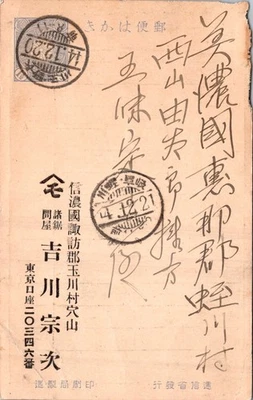 郵便はかき
美濃國惠那郡蛭川村
西山由太郎様方
五味宗
14.12.20
4.12.21
信濃國諏訪郡玉川村穴山
諸鋸
問屋
吉川宗次
東京口座二〇三四六番
印刷局製造
逓信省発行